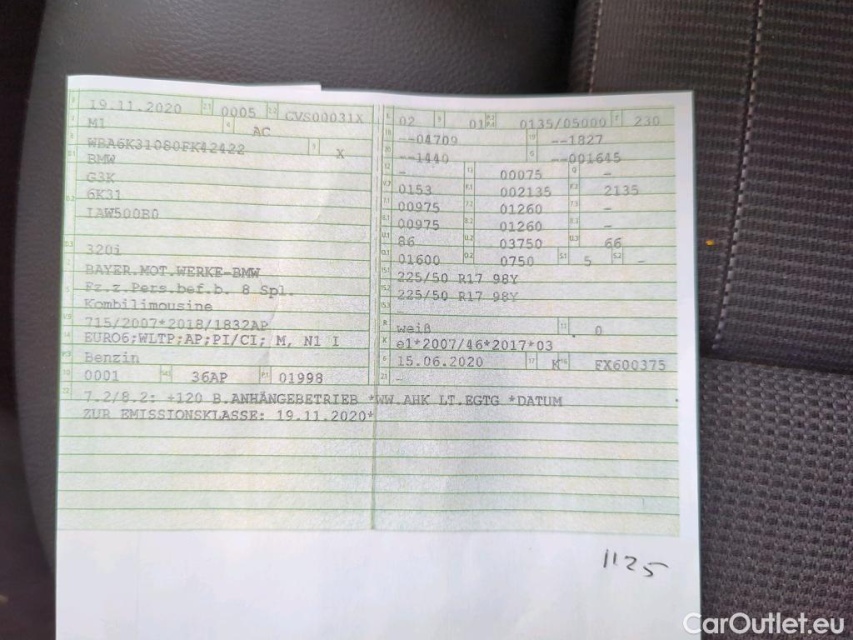 19.11.2020 0005 CVS00031X
M1 AC
WBA6K31080FK42422 X
BMW
G3K
6K31
IAW500B0
320i
BAYER.MOT.WERKE-BMW
Fz.z.Pers.bef.b. 8 Spl.
Kombilimousine
715/2007*2018/1832AP
EURO6;WLTP;AP;PI/CI; M, N1 I
Benzin
0001 36AP 01998
02 01 0135/05000 230
--04709 --1827
--1440 --001645
- 00075 -
0153 002135 2135
00975 01260 -
00975 01260 -
86 03750 66
01600 0750 5 -
225/50 R17 98Y
225/50 R17 98Y
-
weiß 0
e1*2007/46*2017*03
15.06.2020 K FX600375
-
7.2/8.2: *120 B.ANHÄNGEBETRIEB *WW.AHK LT.EGTG *DATUM
ZUR EMISSIONSKLASSE: 19.11.2020*
1125
CarOutlet.eu